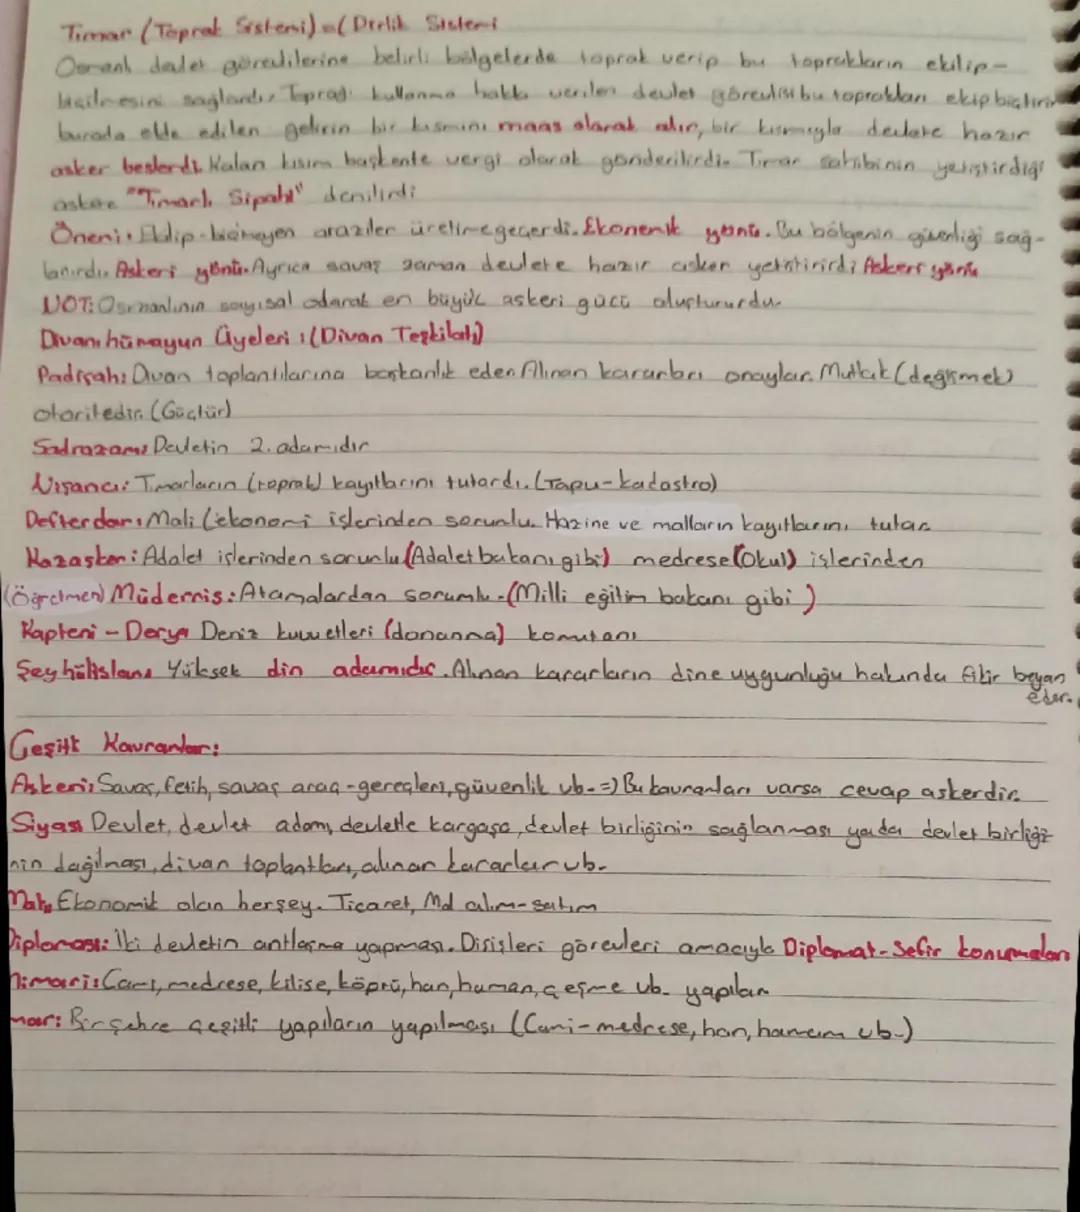 Timar (Toprak Sistemi) = (Dirlik Sistemi
Osmanlı devlet görevlilerine belirli bölgelerde toprak verip bu toprakların ekilip-
biçilmesini sağlardı. Toprağı kullanma hakkı verilen devlet görevlisi bu toprakları ekip biçtirir
burada elde edilen gelirin bir kısmını maaş olarak alır, bir kısmıyla devlete hazır
asker beslerdi. Kalan kısım başkente vergi olarak gönderilirdi. Tımar sahibinin yetiştirdiği
askere "Tımarlı Sipahi" denilirdi
Önemi: Ekilip-biçmeyen araziler üretime geçerdi. Ekonomik yönü. Bu bölgenin güvenliği sağ-
lanırdı. Askeri yönü. Ayrıca savaş zaman devlete hazır asker yetiştirirdi Askeri yönü
NOT: Osmanlının sayısal olarak en büyük askeri gücü oluştururdu.
Divanı hümayun Üyeleri: (Divan Teşkilatı)
Padişah: Divan toplantılarına başkanlık eden Alınan kararları onaylar. Mutlak (değişmek)
otoritedir. (Güçtür)
Sadrazam: Devletin 2. adamıdır
Nişancı: Tımarların (toprak) kayıtlarını tutardı. (Tapu-kadastro)
Defterdar: Mali (ekonomi işlerinden sorumlu. Hazine ve malların kayıtlarını tutar.
Kazasker: Adalet işlerinden sorumlu (Adalet bakanı gibi) medrese (Okul) işlerinden
(Öğretmen) Müderris: Atamalardan sorumlu. (Milli eğitim bakanı gibi)
Kapteni - Derya Deniz kuvvetleri (donanma) komutanı
Şeyhülislam: Yüksek din adamıdır. Alınan kararların dine uygunluğu hakında fikir beyan
eder.
Çeşitli Kavramlar:
Askeri: Savaş, fetih, savaş araç-gereçleri, güvenlik vb. => Bu kavramları varsa cevap askerdir.
Siyasi Devlet, devlet adamı, devletle kargaşa, devlet birliğinin sağlanması yada devlet birliği
nin dağılması, divan toplantıları, alınan kararlar vb.
Mali Ekonomik olan herşey. Ticaret, Mal alım-satım
Diplomasi: İki devletin antlaşma yapması. Dışişleri görevleri amacıyla Diplomat-Sefir konumaları
Mimari: Cami, medrese, kilise, köprü, han, hamam, çeşme vb. yapıları
mar: Bir şehre çeşitli yapıların yapılması (Cami-medrese, han, hamam vb.)